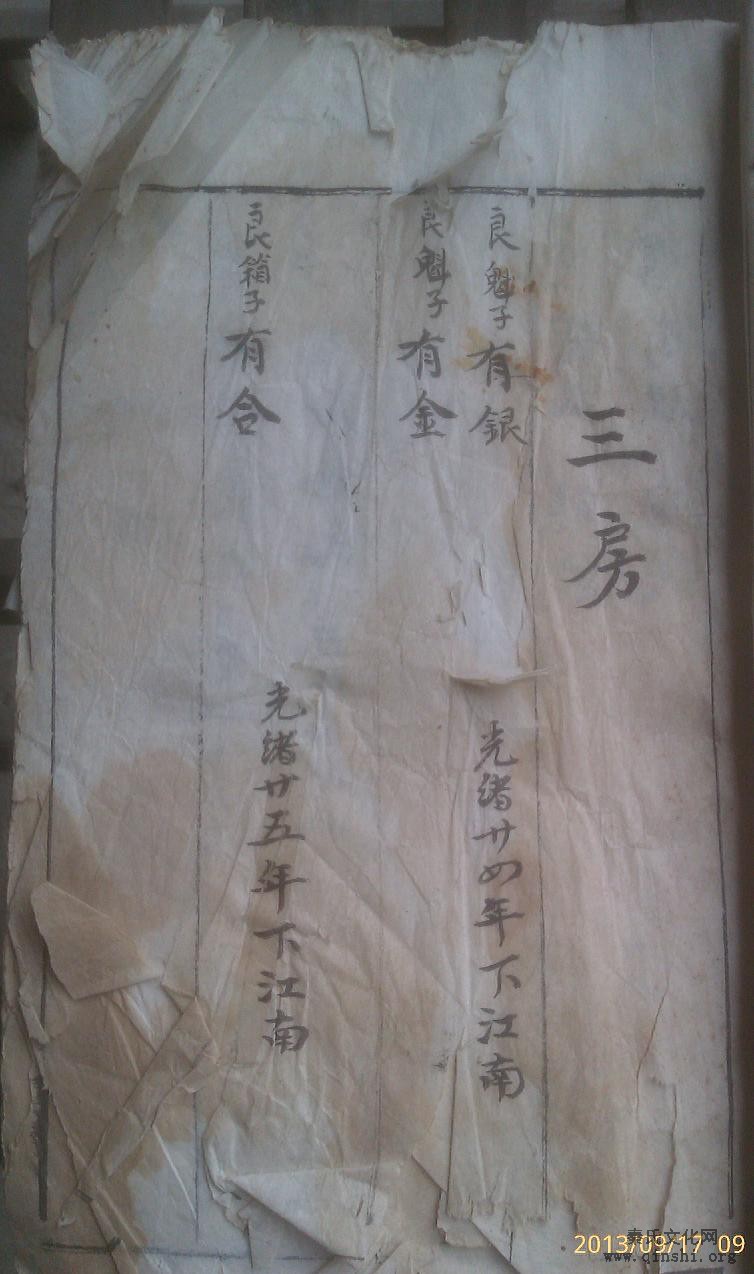 三房
良魁子有銀
光緒廿四年下江南
良魁子有金
良箱子有合
光緒廿五年下江南
2013/09/17 09
秦氏文化网
www.qinshi.org